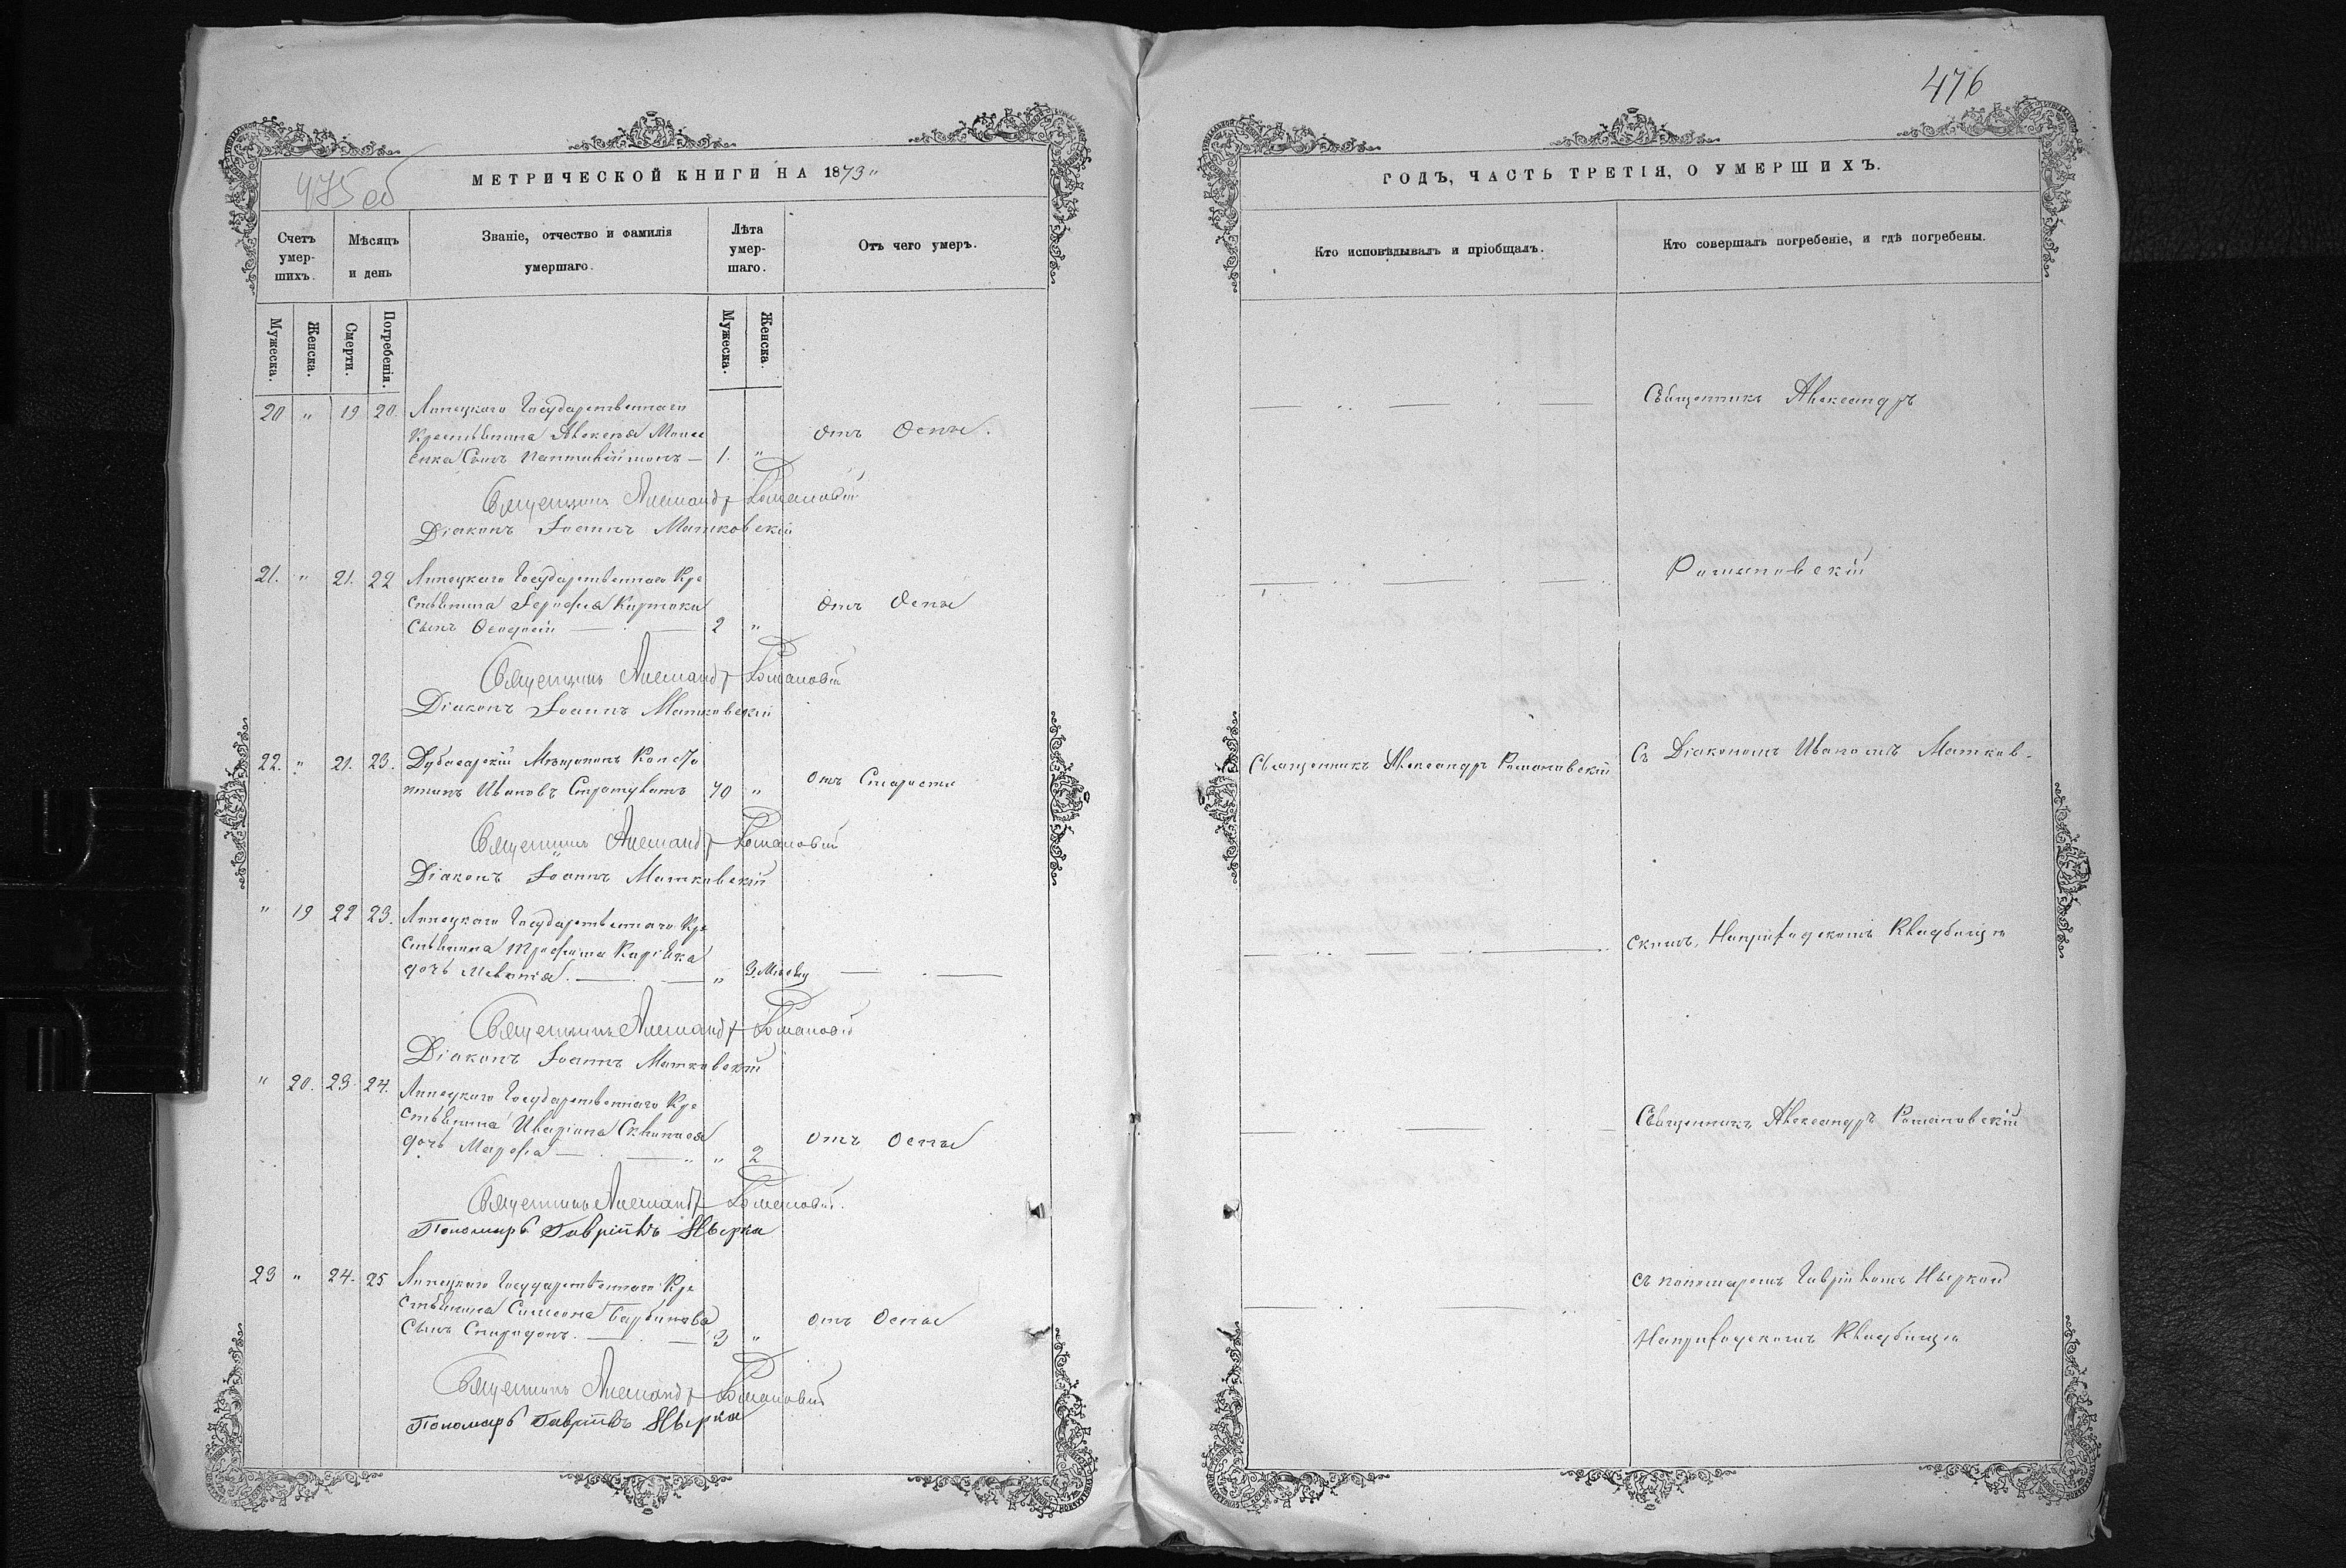 476
475 об
МЕТРИЧЕСКОЙ КНИГИ НА 1873
Счетъ умер-шихъ.
Мѣсяцъ и день
Званіе, отчество и фамилія умершаго.
Лѣта умер-шаго.
Отъ чего умеръ.
Мужеска.
Женска.
Смерти.
Погребенія.
Мужеска.
Женска.
20 " 19 20. Липецкаго Государственнаго
Крестьянина Алексѣя
Сынъ 1. " отъ Оспы.
Священникъ Александръ Романовскій
Діаконъ Іоаннъ Матковскій
21. " 21. 22 Липецкаго Государственнаго Кре
стьянина
Сынъ 2 " отъ Оспы
Священникъ Александръ Романовскій
Діаконъ Іоаннъ Матковскій
22. " 21. 23. Дубосарскій Мѣщанинъ Конста
нтинъ Ивановъ 70 " отъ Старости
Священникъ Александръ Романовскій
Діаконъ Іоаннъ Матковскій
" 19 22 23. Липецкаго Государственнаго Кре
стьянина Трофима
дочь " 3. Мѣсяц
Священникъ Александръ Романовскій
Діаконъ Іоаннъ Матковскій
" 20. 23. 24. Липецкаго Государственнаго Кре
стьянина
дочь Марфа " 2 отъ Оспы
Священникъ Александръ Романовскій
Пономарь Гавріилъ Нырка
23 " 24. 25 Липецкаго Государственнаго Кре
стьянина Симеона
Сынъ Спиридонъ. 3 " отъ Оспы
Священникъ Александръ Романовскій
Пономарь Гавріилъ Нырка
ГОДЪ, ЧАСТЬ ТРЕТІЯ, О УМЕРШИХЪ.
Кто исповѣдывалъ и пріобщалъ.
Кто совершалъ погребеніе, и гдѣ погребены.
Священникъ Александръ
Романовскій
Священникъ Александръ Романовскій
Съ Діакономъ Иваномъ Матков-
скимъ, Наприходскомъ Кладбищѣ
Священникъ Александръ Романовскій
съ пономаремъ Гавріиломъ Ныркой
Наприходскомъ Кладбищѣ